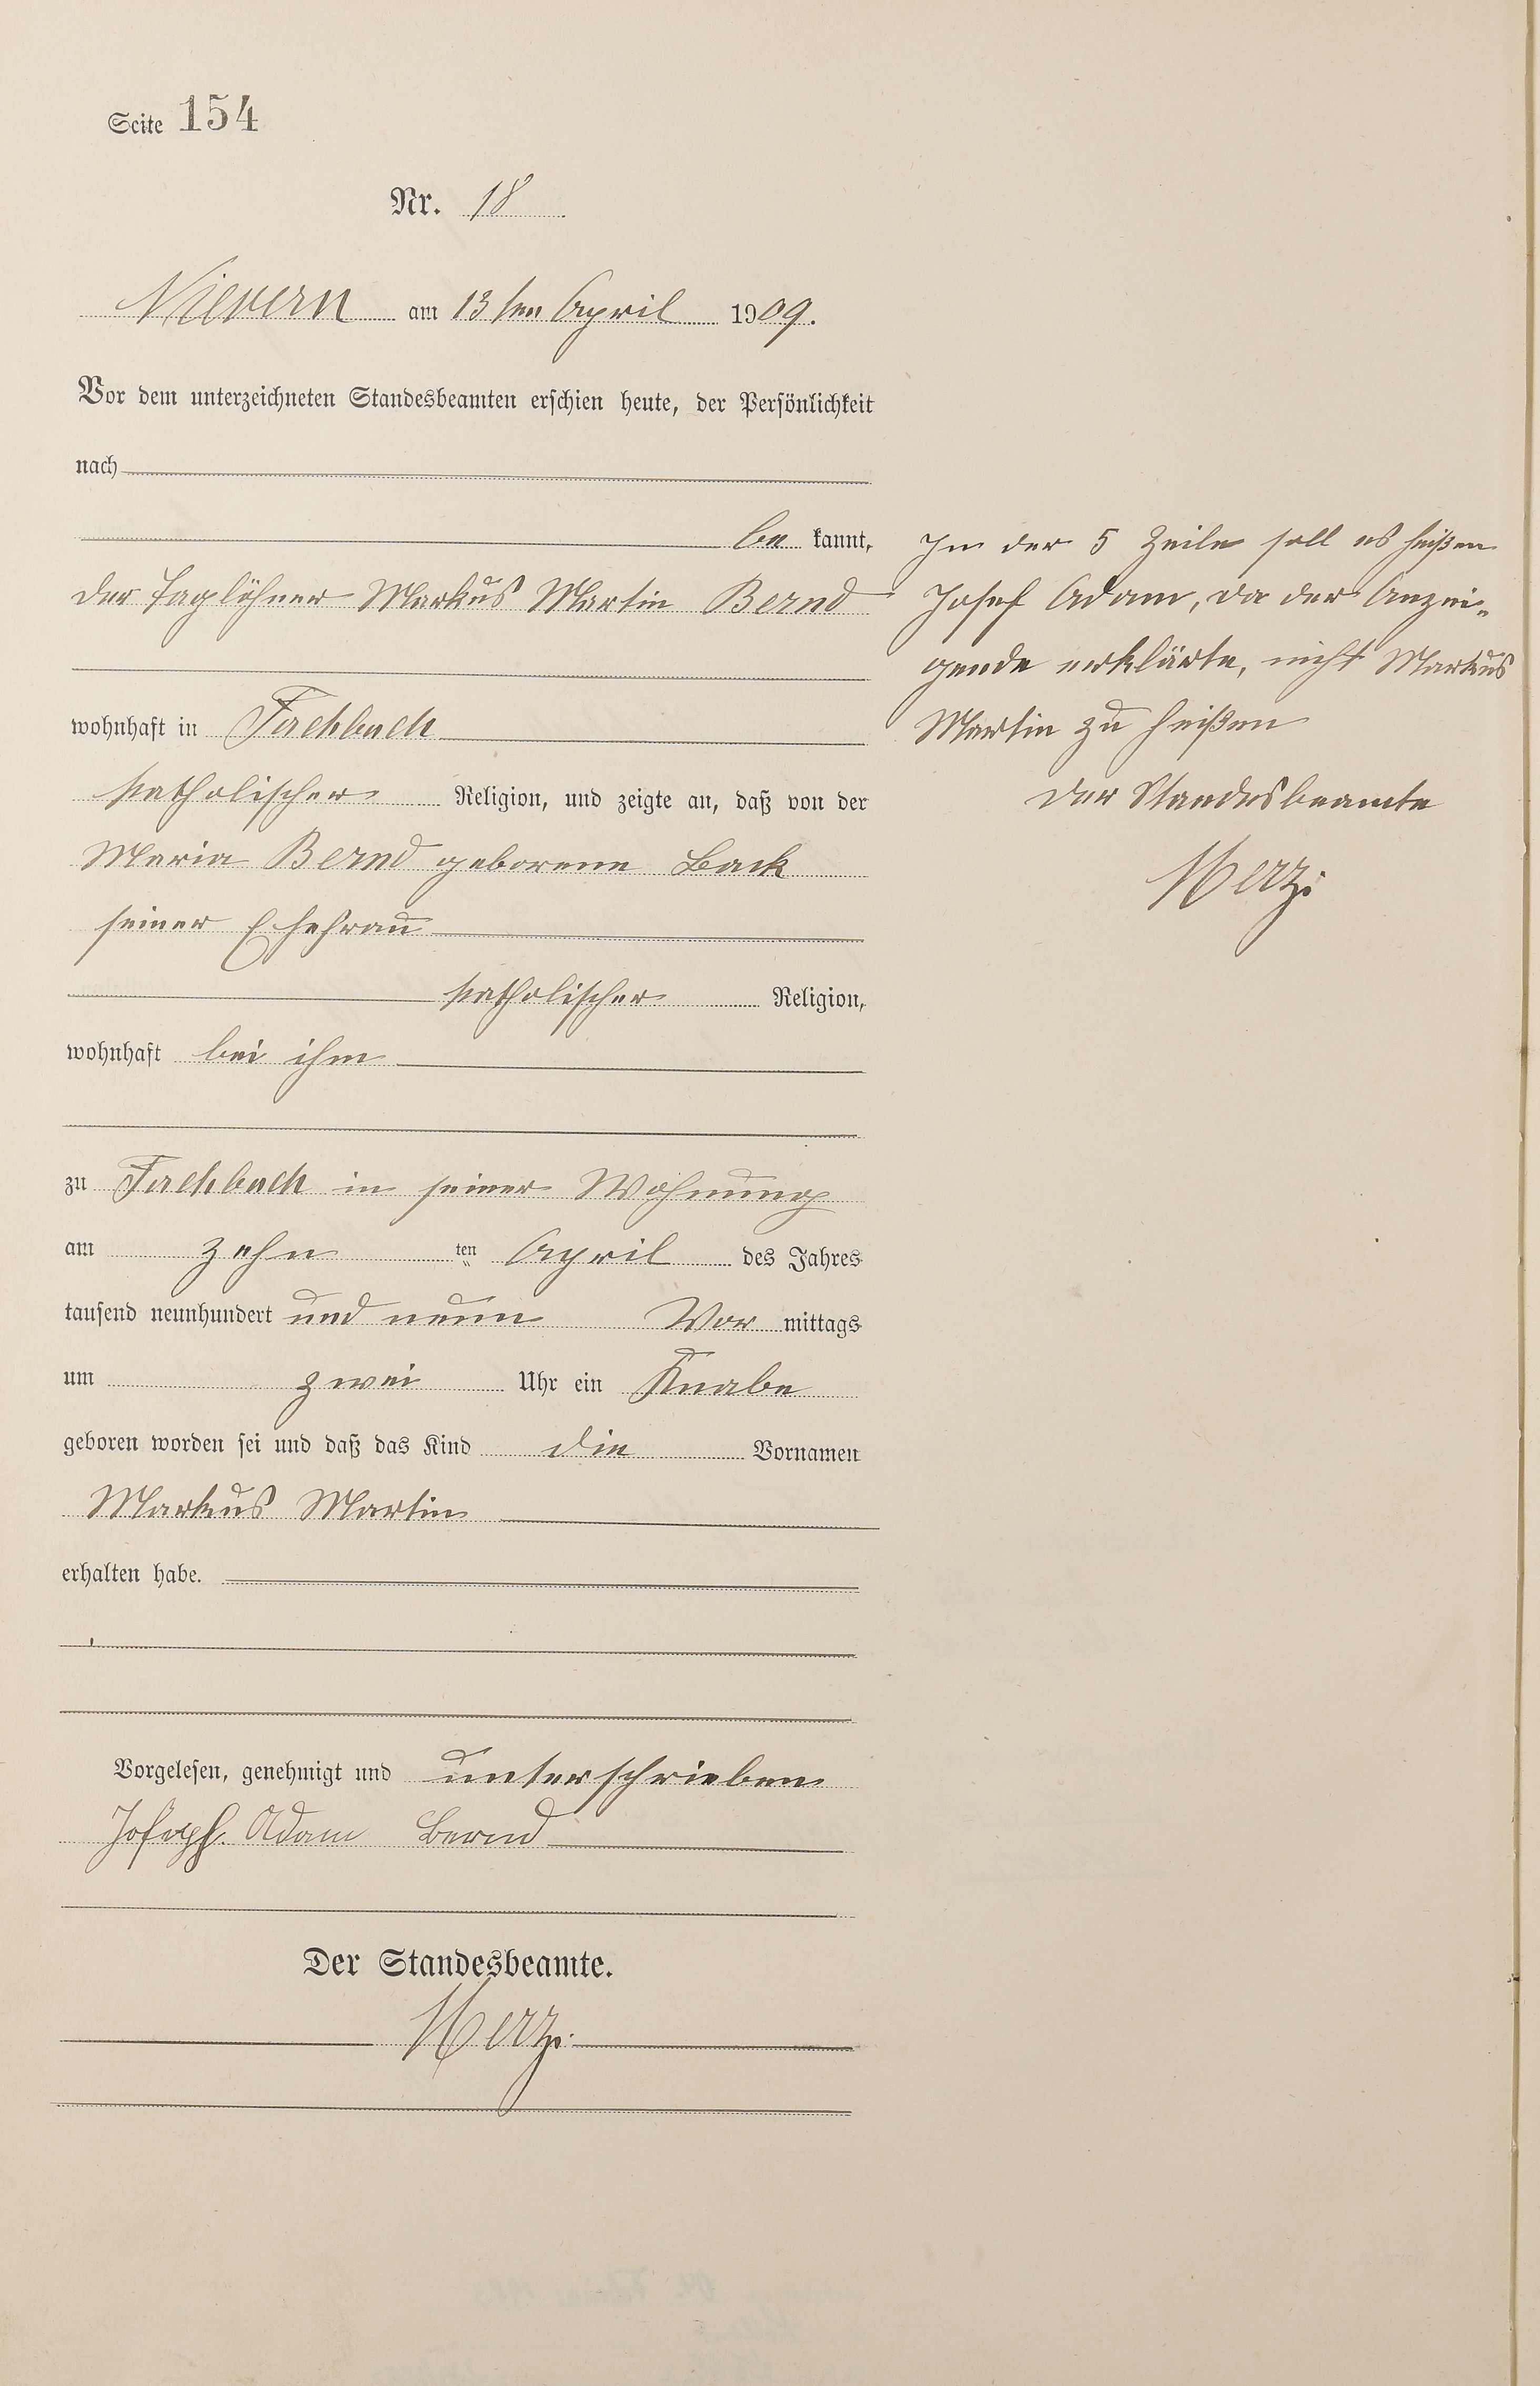 Seite 154
Nr. 18
Nievern am 13ten April 1909.
Vor dem unterzeichneten Standesbeamten erschien heute, der Persönlichkeit
nach
be kannt,
der Taglöhner Markus Martin Bernd
wohnhaft in Fachbach
katholischer Religion, und zeigte an, daß von der
Maria Bernd geborene Back
seiner Ehefrau
katholischer Religion,
wohnhaft bei ihm
zu Fachbach in seiner Wohnung
am zehn ten April des Jahres
tausend neunhundert und neun Vor mittags
um zwei Uhr ein Knabe
geboren worden sei und daß das Kind die Vornamen
Markus Martin
erhalten habe.
Vorgelesen, genehmigt und unterschrieben
Joseph Adam Bernd
Der Standesbeamte.
Merz.
In der 5 Zeile soll es heißen
Josef Adam, da der Anzei-
gende erklärte, nicht Markus
Martin zu heißen
Der Standesbeamte
Merz.